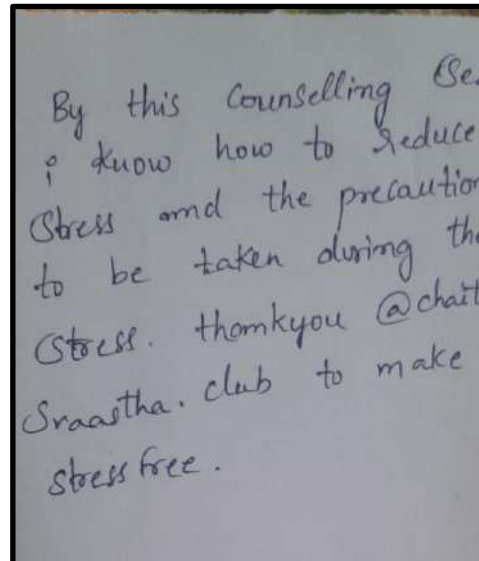 By this Counselling Se
i know how to reduce
Stress and the precaution
to be taken during the
Stress. thankyou @chait
Sraastha. club to make
stress free.